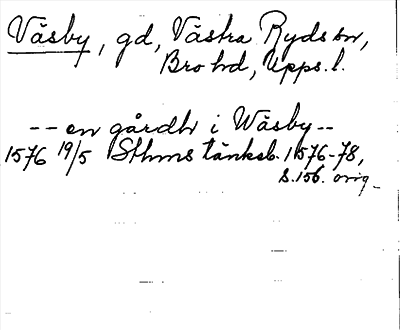 Väsby, gd, Västra Ryds sn,
Bro hd, Upps. l.
-- en gårdh i Wäsby --
1576 19/5 Sthms tänkeb. 1576-78,
s. 156. orig.